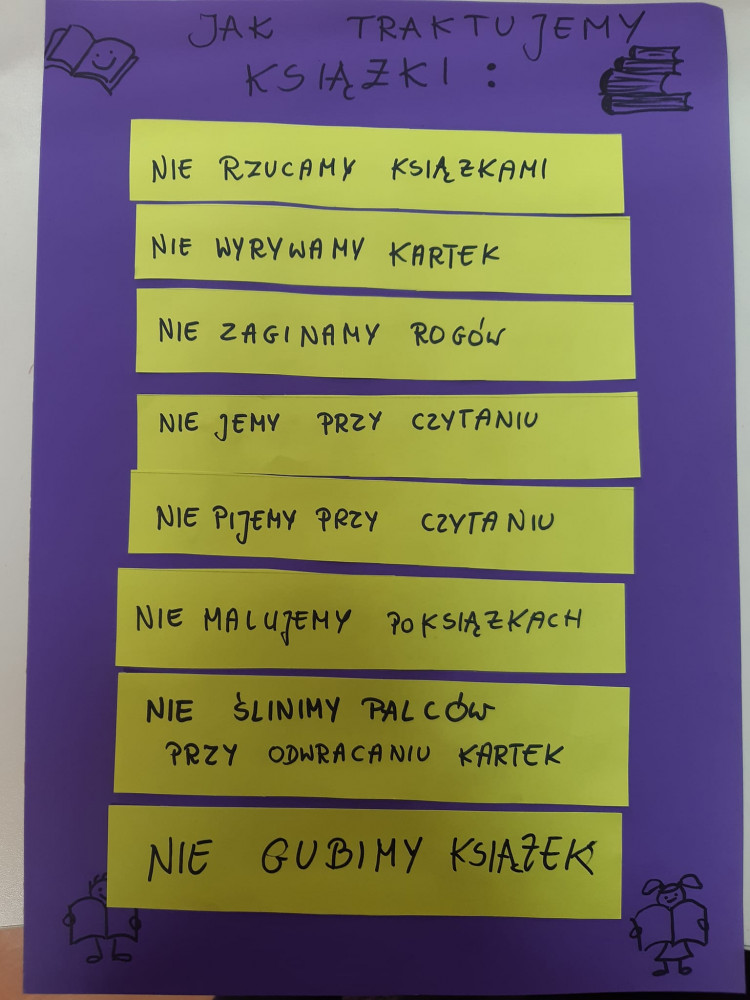 JAK TRAKTUJEMY
KSIĄŻKI:
NIE RZUCAMY KSIĄŻKAMI
NIE WYRYWAMY KARTEK
NIE ZAGINAMY ROGÓW
NIE JEMY PRZY CZYTANIU
NIE PIJEMY PRZY CZYTANIU
NIE MALUJEMY PO KSIĄŻKACH
NIE ŚLINIMY PALCÓW
PRZY ODWRACANIU KARTEK
NIE GUBIMY KSIĄŻEK